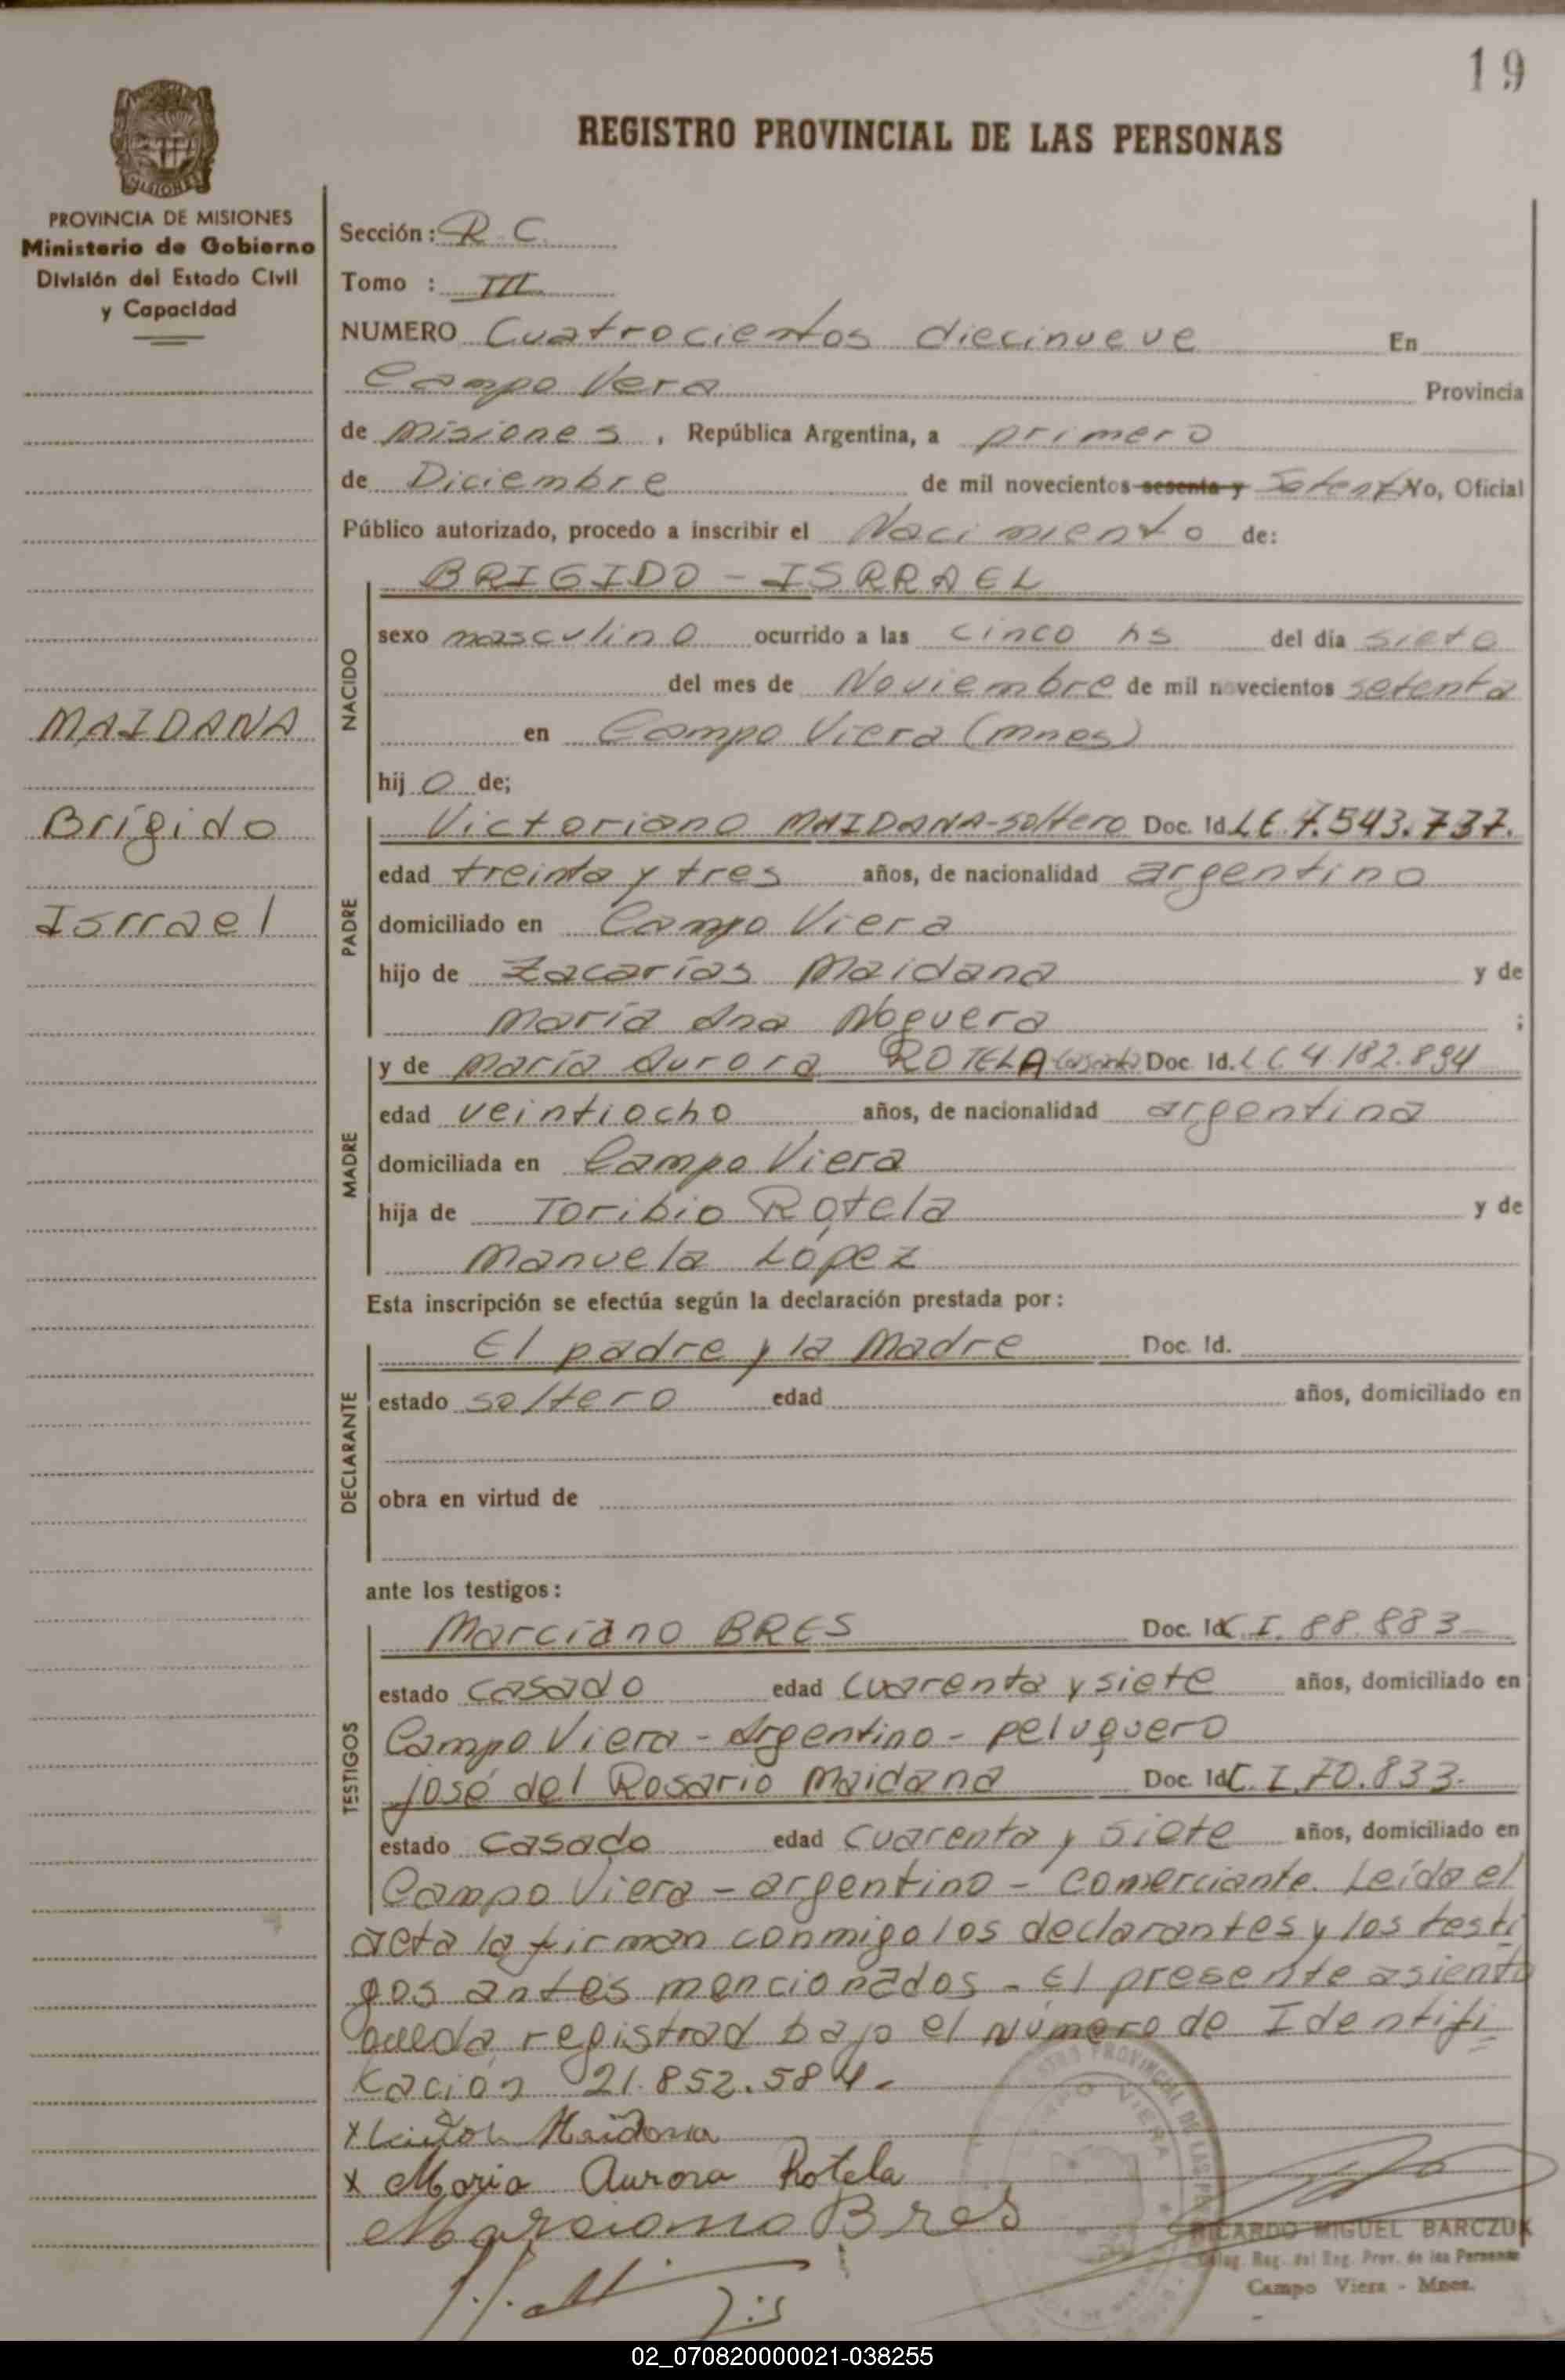 19
REGISTRO PROVINCIAL DE LAS PERSONAS
MISIONES
PROVINCIA DE MISIONES
Ministerio de Gobierno
División del Estado Civil
y Capacidad
MAIDANA
Brígido
Isrrael
Sección: R. C.
Tomo : III
NUMERO Cuatrocientos diecinueve En
Campo Vera Provincia
de Misiones, República Argentina, a primero
de Diciembre de mil novecientos sesenta y Setenta Yo, Oficial
Público autorizado, procedo a inscribir el Nacimiento de:
NACIDO
BRIGIDO - ISRRAEL
sexo masculino ocurrido a las cinco hs del día siete
del mes de Noviembre de mil novecientos setenta
en Campo Viera (Mnes)
hij o de;
PADRE
Victoriano MAIDANA-soltero Doc. Id. LE. 7.543.737.
edad treinta y tres años, de nacionalidad argentino
domiciliado en Campo Viera
hijo de Zacarías Maidana y de
María Ana Noguera ;
MADRE
y de María Aurora ROTELA Doc. Id. LC 4.182.894
edad veintiocho años, de nacionalidad argentina
domiciliada en Campo Viera
hija de Toribio Rotela y de
Manuela López
Esta inscripción se efectúa según la declaración prestada por:
DECLARANTE
El padre y la Madre Doc. Id.
estado soltero edad años, domiciliado en
obra en virtud de
ante los testigos:
TESTIGOS
Marciano BRES Doc. Id. C. I. 88.883
estado casado edad cuarenta y siete años, domiciliado en
Campo Viera - Argentino - peluquero
José del Rosario Maidana Doc. Id. C. I. 70.833.
estado casado edad cuarenta y siete años, domiciliado en
Campo Viera - argentino - comerciante. Leída el
acta la firman conmigo los declarantes y los testi
gos antes mencionados - El presente asiento
queda registrad bajo el Número de Identifi
cación 21.852.584.-
x Maidana
x Maria Aurora Rotela
Marciano Bres
RICARDO MIGUEL BARCZUK
Deleg. Reg. del Reg. Prov. de las Personas
Campo Viera - Mnes.
02_070820000021-038255